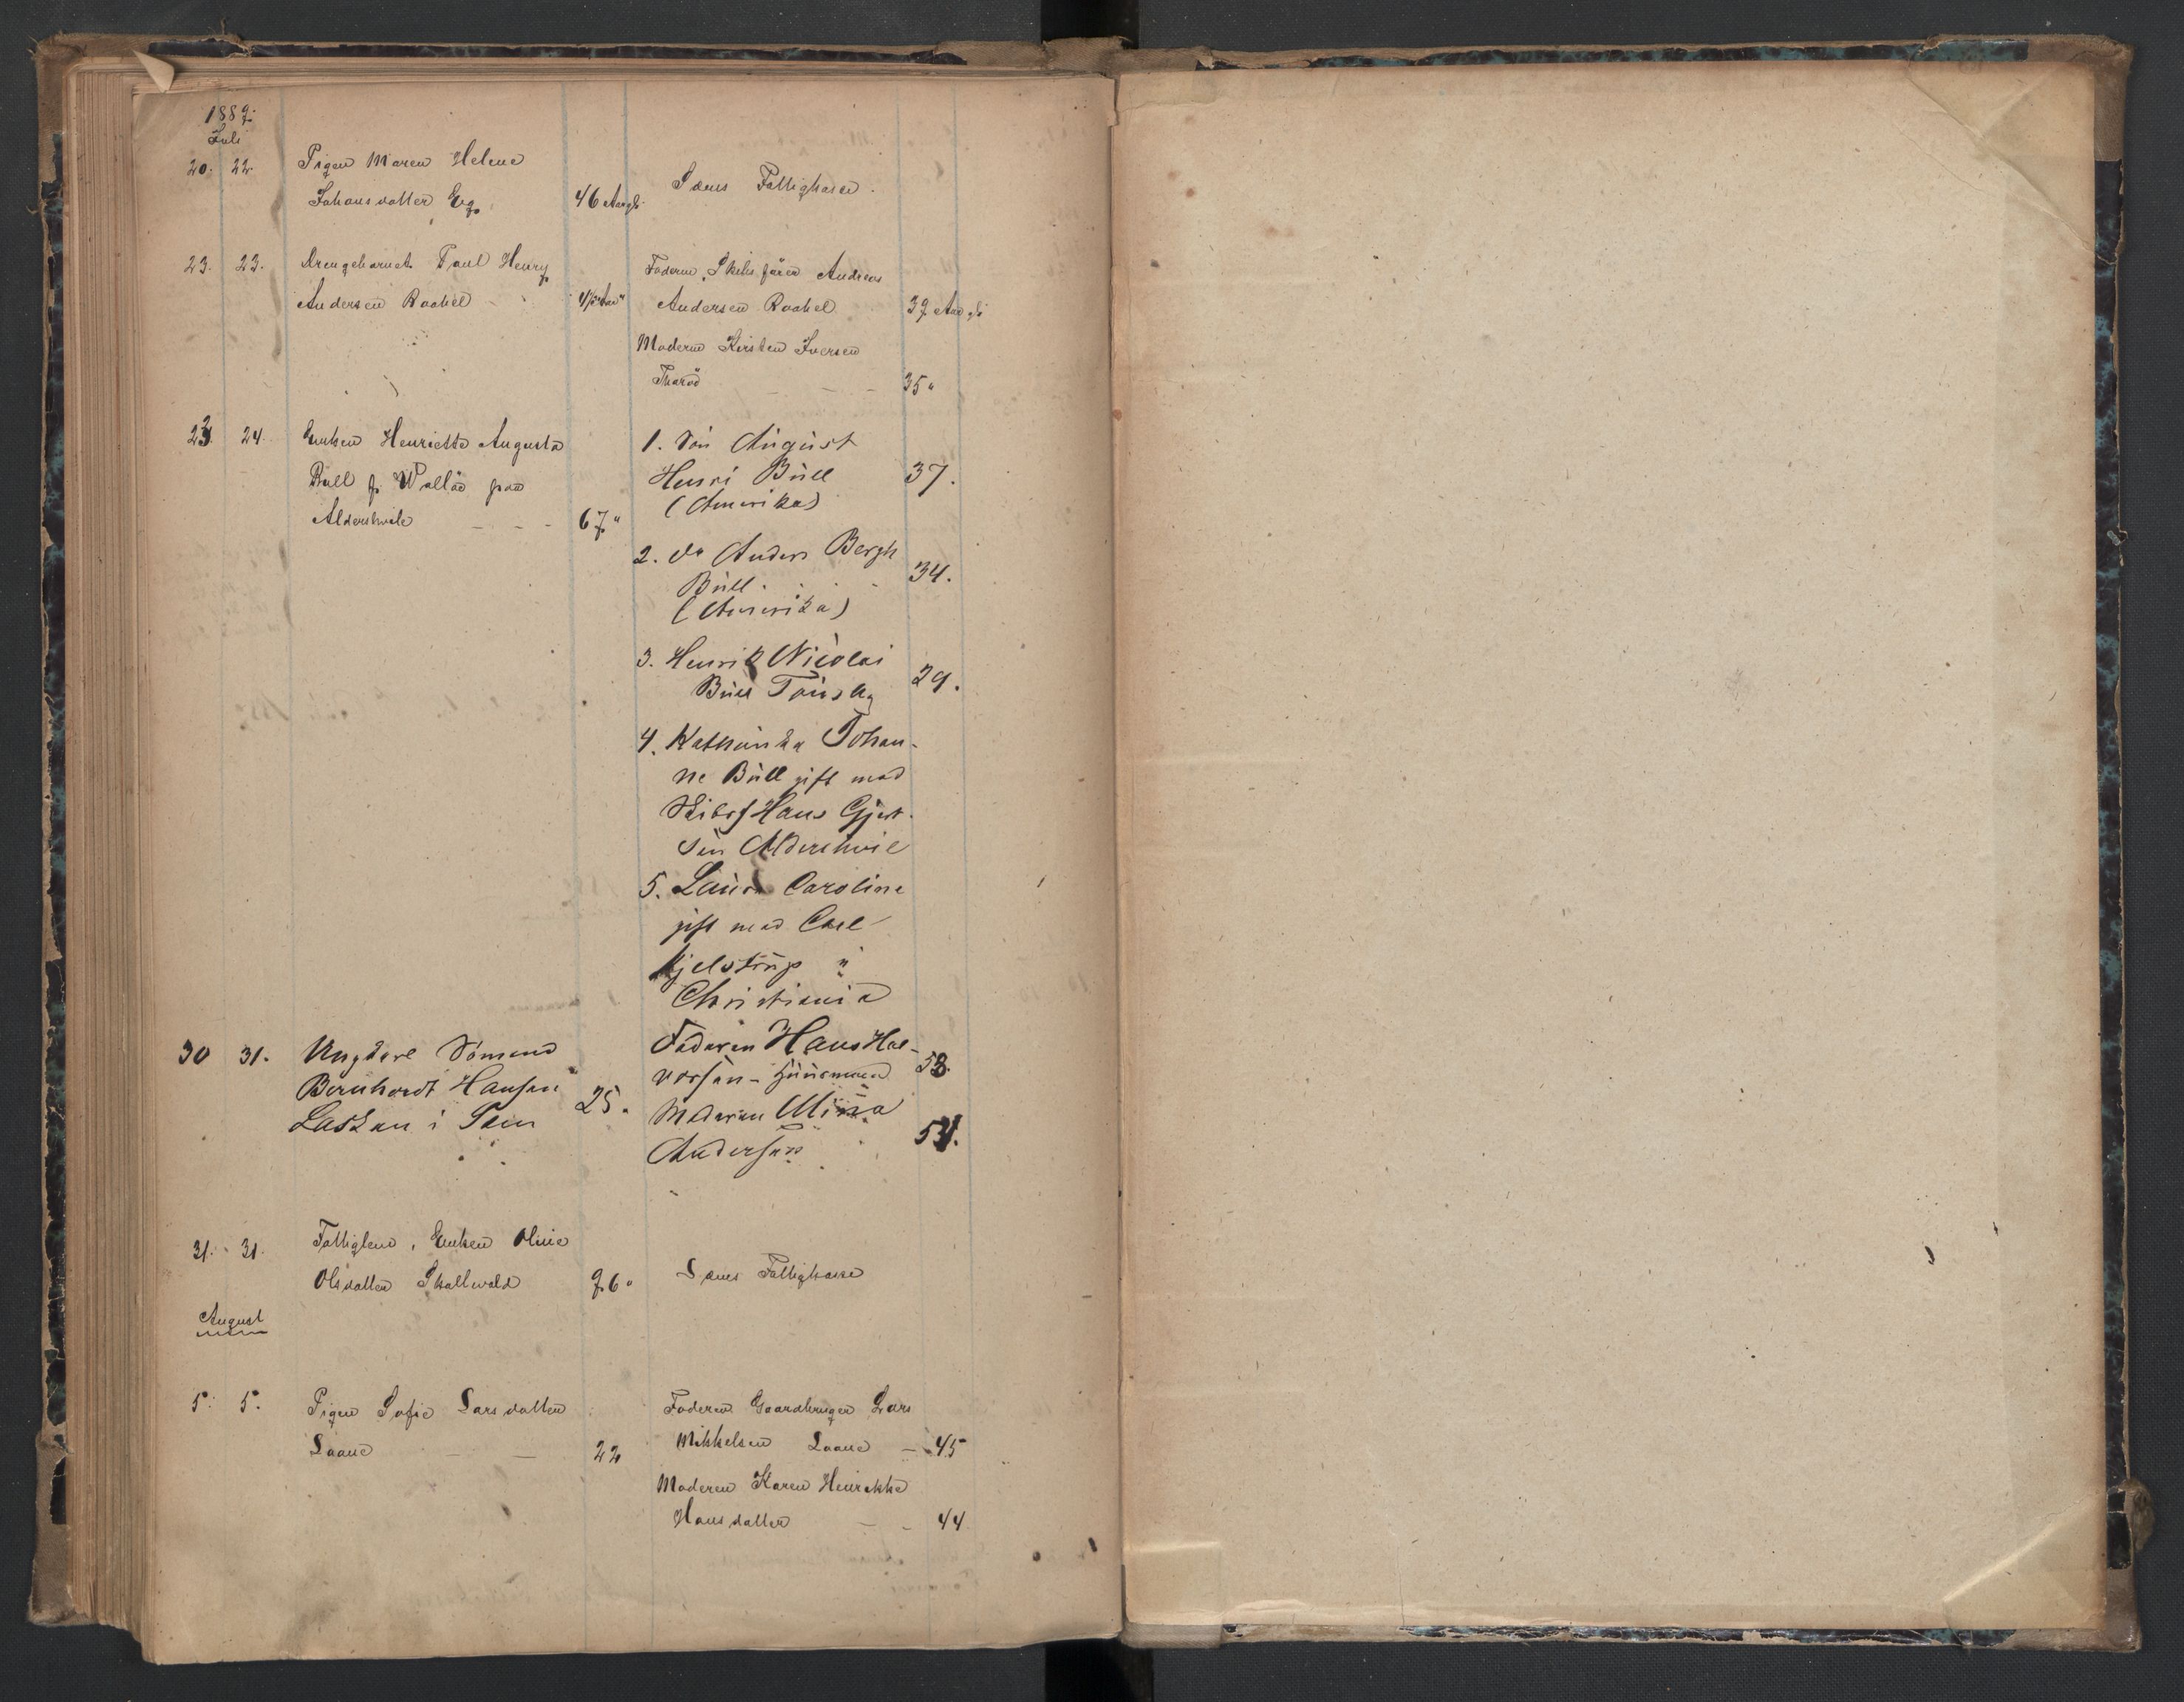 1889.
Juli
20. 22. Pigen Maren Helene
Johansdatter Eeg 46 Aargl. Sems Fattigkasse.
23. 23. Drengebarnet Paul Henry Faderen, Skibsfører Andreas
Andersen Rockel - 4½ Aar " Andersen Rockel 39 Aar gl.
Moderen Kirsten Iversen
Tharød - - 35 "
23. 24. Enken Henriette Augusta
Bull f. Walløe paa
Aldershvile - - - 67 "
1. Søn August
Henri Büll 37.
(Amerika)
2. do Anders Bergh
Büll. 34.
(Amerika)
3. Henrik Nicolai
Büll Tønsbg 29.
4. Kathinka Johan-
ne Büll gift med
Skibsf Hans Gjert-
sen Aldershvile
5. Laura Caroline
gift med Carl
Kjelstrup i
Christiania
30 31. Ungkarl Sømand
Bernhardt Hansen 25.
Lasken i Sem
Faderen Hans Hal-
vorsen - Huusmand 53.
Moderen Mina
Andersen 54.
31. 31. Fattiglem, Enken Oline
Olsdatter Skallevold 76 " Sems Fattigkasse
August
5. 5. Pigen Sofie Larsdatter Faderen Gaardbruger Lars
Laane - - 22 Mikkelsen Laane - 45
Moderen Karen Henrikke
Hansdatter - - 44